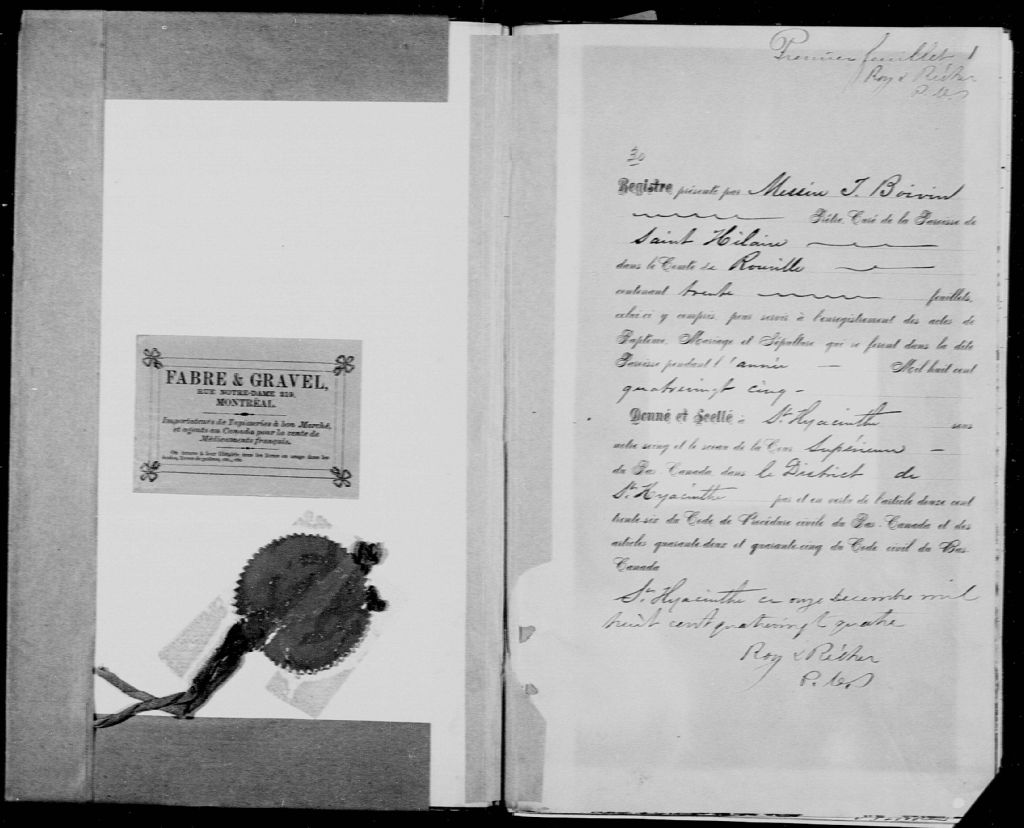 FABRE & GRAVEL,
RUE NOTRE-DAME 219,
MONTRÉAL.
Importateurs de Tapisseries à bon Marché,
et agents au Canada pour la vente de
Médicaments français.
Premier feuillet 1
Roy & Richer
P. C. S
30
Registre présenté par Messire T. Boivin
Prêtre, Curé de la Paroisse de
Saint Hilaire
dans le Comté de Rouville
contenant trente feuillets,
celui-ci y compris, pour servir à l'enregistrement des actes de
Baptême, Mariage et Sépulture qui se feront dans la dite
Paroisse pendant l'année Mil huit cent
quatrevingt cinq -
Donné et Scellé à St. Hyacinthe sous
notre seing et le sceau de la Cour Supérieure
du Bas-Canada, dans le District de
St. Hyacinthe par et en vertu de l'article douze cent
trente-six du Code de Procédure civile du Bas-Canada et des
articles quarante-deux et quarante-cinq du Code civil du Bas-
Canada
St. Hyacinthe ce onze Decembre mil
huit cent quatrevingt quatre
Roy & Richer
P. C. S